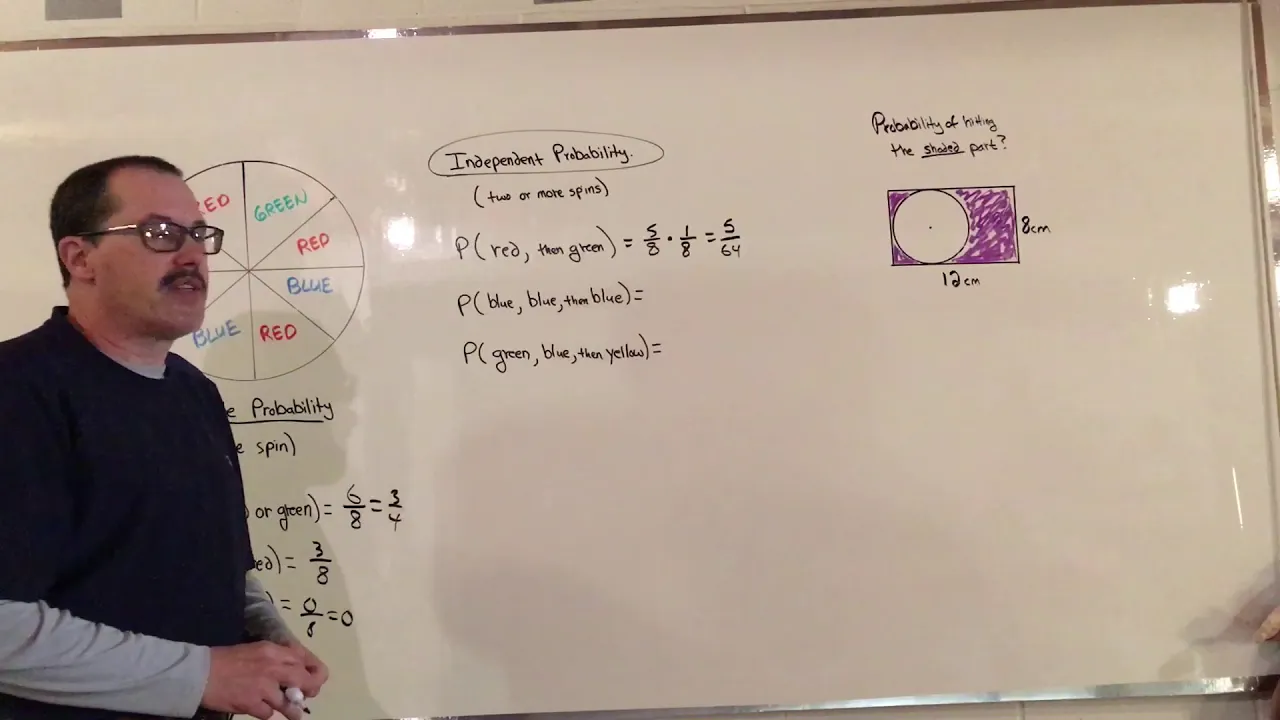 GREEN
RED
BLUE
RED
BLUE
Probability
spin)
or green) = 6/8 = 3/4
= 3/8
) = 0/8 = 0
Independent Probability.
(two or more spins)
P( red, then green) = 5/8 · 1/8 = 5/64
P( blue, blue, then blue) =
P( green, blue, then yellow) =
Probability of hitting
the shaded part?
8cm
12cm